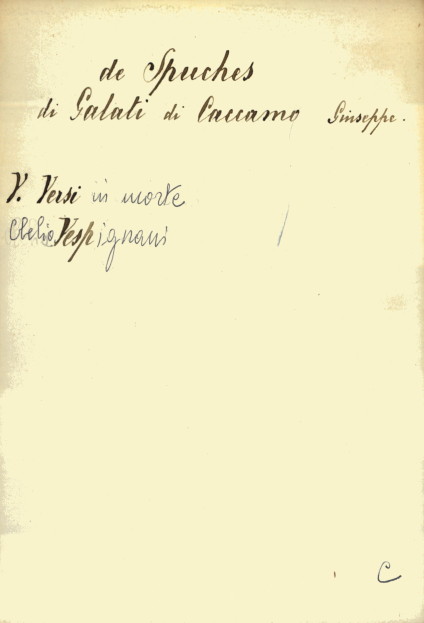 de Spuches
di Galati di Caccamo Giuseppe.
V. Versi in morte
Clelia Vespignani
C